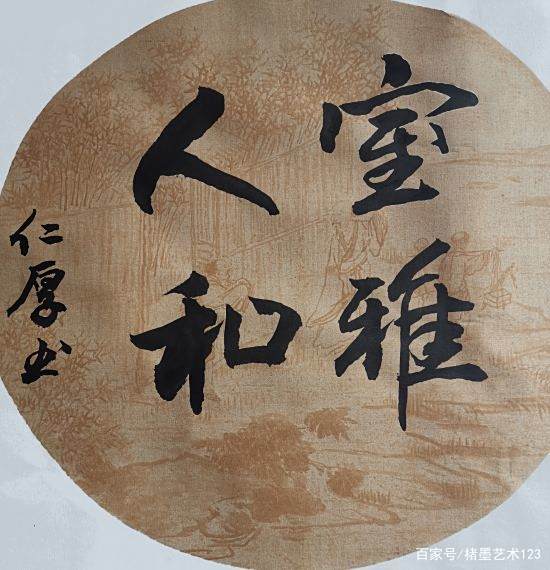 室雅
人和
仁厚书
百家号/楮墨艺术123